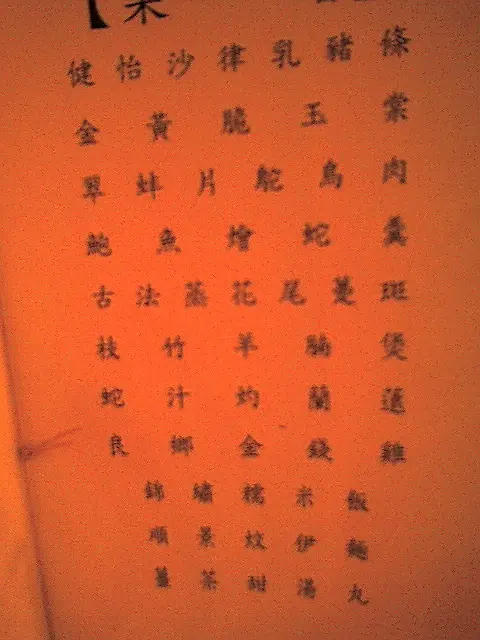 【菜
健怡沙律乳豬條
金黃脆玉棠
翠蚌片鴕鳥肉
鮑魚燴蛇羹
古法蒸花尾躉斑
枝竹羊腩煲
蛇汁灼蘭薳
良鄉金錢雞
錦繡糯米飯
順景炆伊麵
薑茶甜湯丸